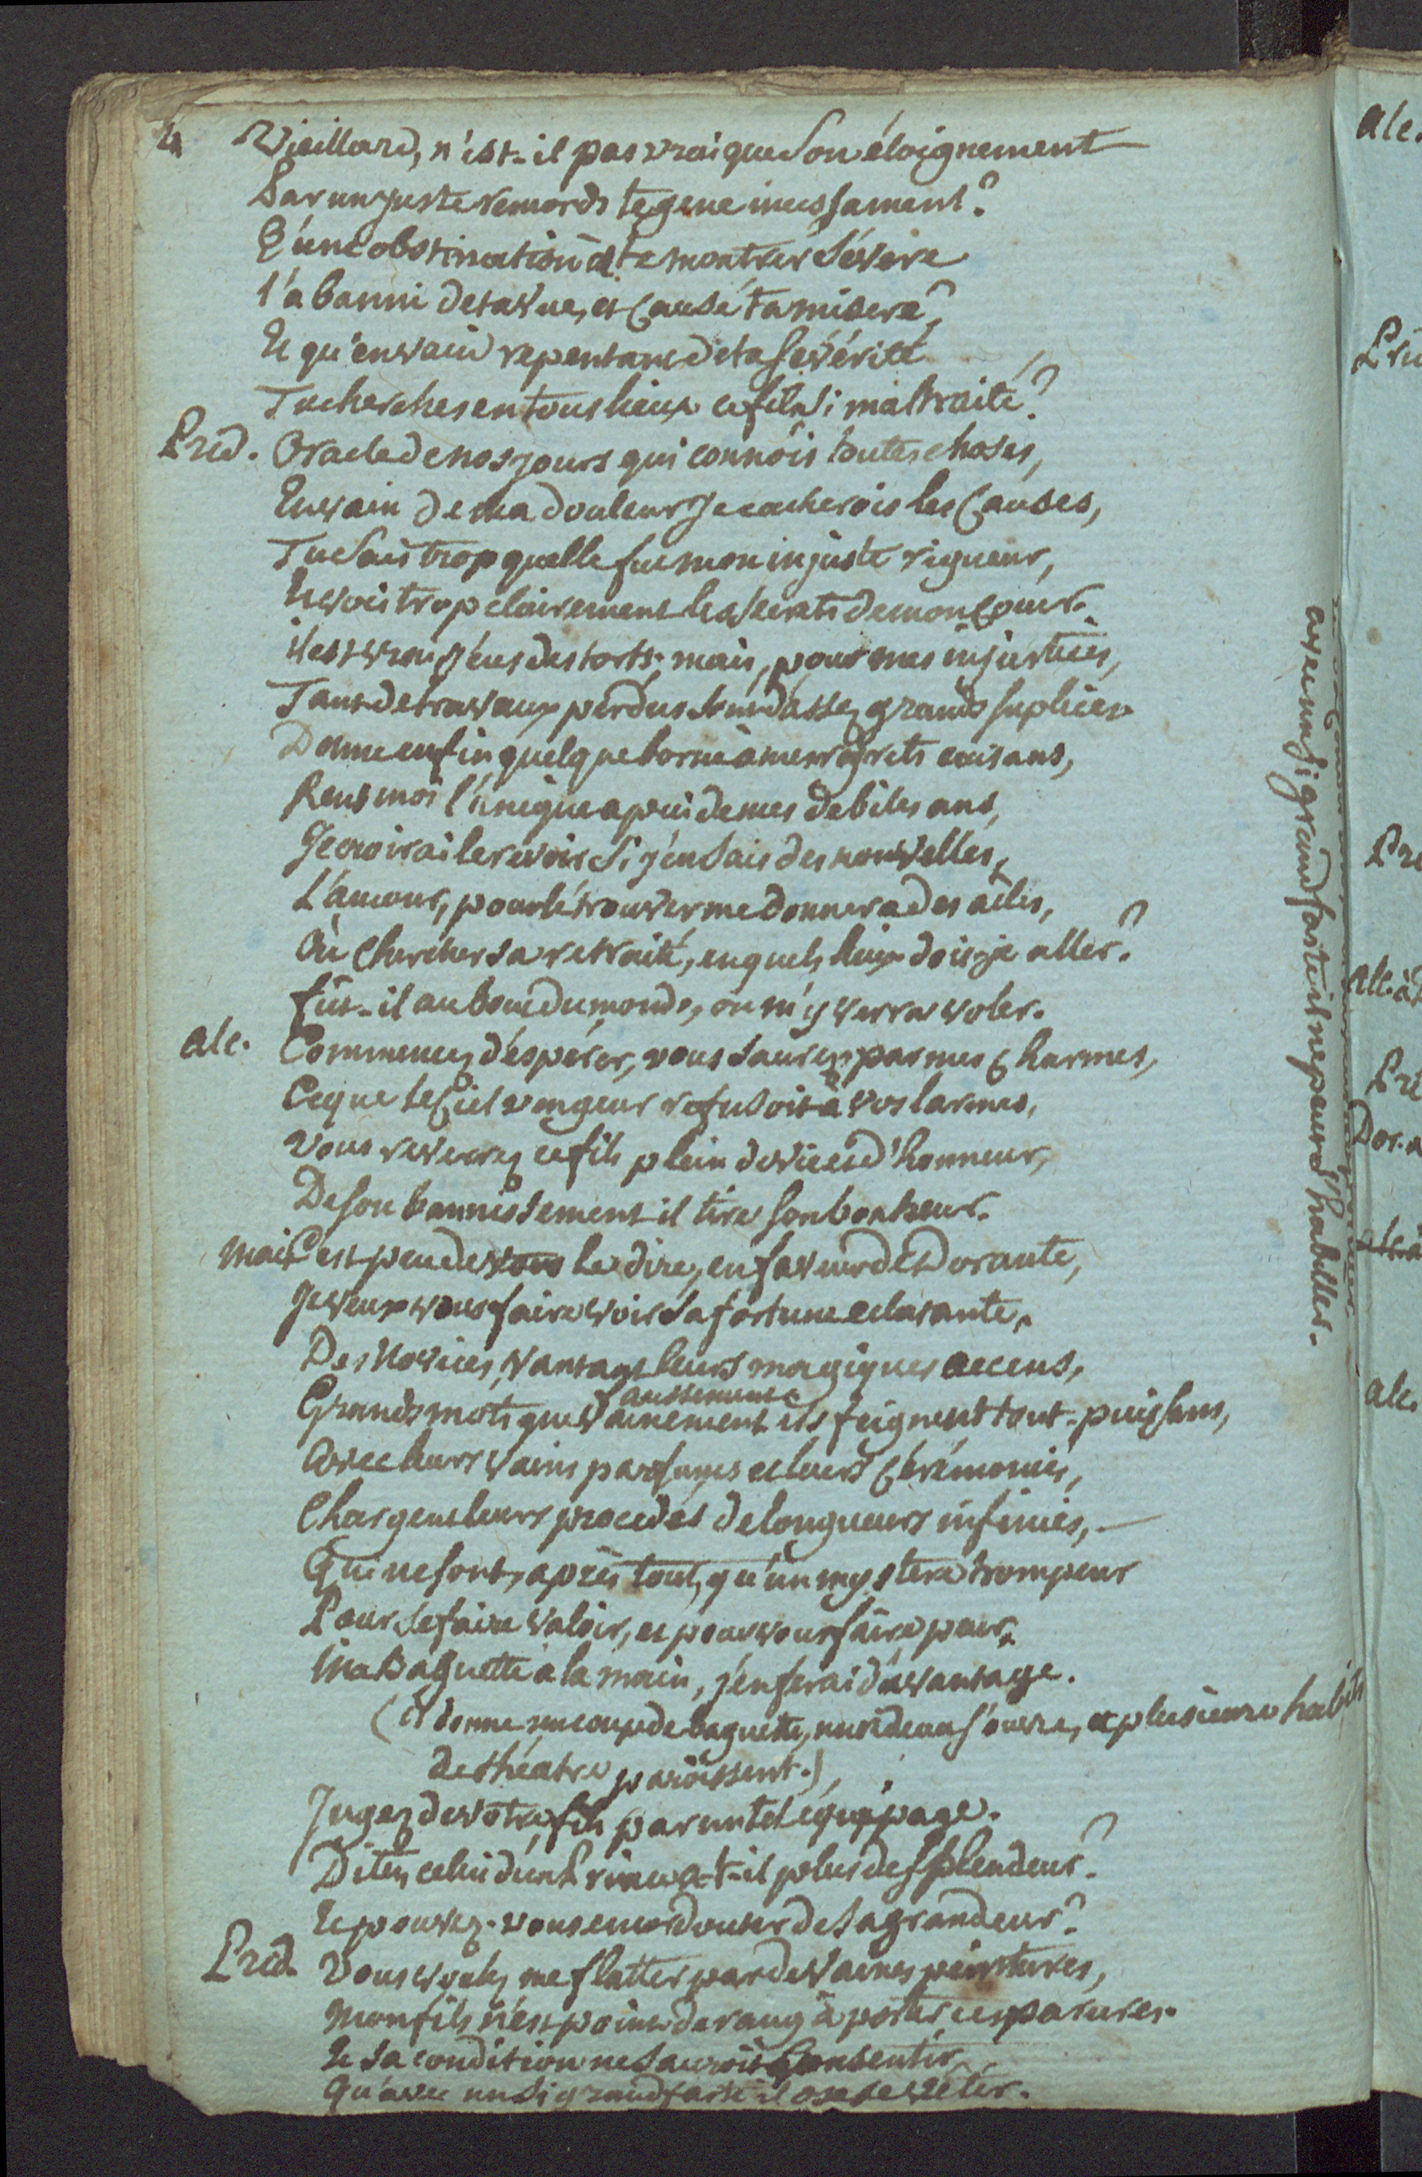 4 Vieillard, n'est-il pas vrai que son éloignement
Par un juste remords te gene incessament?
Q'une obstination à te montrer sévere
l'a banni de ta vue, et causé ta misere?
Et qu'en vain repentant de ta sévérité
Tu cherches en tous lieux ce fils si maltraité?
Prid. Oracle de nos jours qui connôis toutes choses,
En vain de ma douleur je cacherois les causes,
Tu sais trop quelle fut mon injuste rigueur,
Et vois trop clairement les secrets de mon cœur.
il est vrai j'eus des torts; mais, pour mes injustices,
Tant de travaux perdus sont d'assez grands suplices
Donne enfin quelque borne à mes regrets cuisans,
Rens moi l'unique apui de mes debiles ans,
Je croirai le revoir si j'en sais des nouvelles,
L'amour, pour le trouver me donnera des aîles,
Où chercher sa retraite, en quels lieux dois-je aller?
fut-il au bout du monde, on m'y verra voler.
Alc. Commencez d'espérer, vous saurez par mes charmes,
Ce que le Ciel vengeur refusoit à vos larmes,
Vous reverrez ce fils plein de vie et d'honneur,
De son bannissement il tire son bonheur.
Mais C'est peu de vous le dire, en faveur de Dorante,
Je veux vous faire voir sa fortune eclatante,
Des Novices, vantant leurs magiques accens,
faussement
Grands mots que vainement ils feignent tout-puissans,
Avec leurs vains parfums et leurs cérémonies,
Chargent leurs procedés de longueurs infinies,
Qui ne sont, après tout, qu'un mystere trompeur
Pour se faire valoir, et pour vous faire peur,
Ma Baguette à la main, j'en ferai d'avantage.
(il donne un coup de baguette, un rideau s'ouvre, et plusieurs habits
de théatre parôissent.)
Jugez de votre fils par un tel équippage.
Ditez, celui d'un Prince a-t-il plus de splendeur?
Et pouvez-vous encor douter de sa grandeur?
Prid. Vous voulez me flatter par de vaines peintures,
Mon fils n'est point de rang à porter ces parures.
Et sa condition ne sauroit consentir
Qu'avec un si grand faste il ose se vétir.
avec un si grand faste il ne peut s'habiller.
Alc.
Pri
Pri
Alc. à
Pri
Dor. a
Alc.